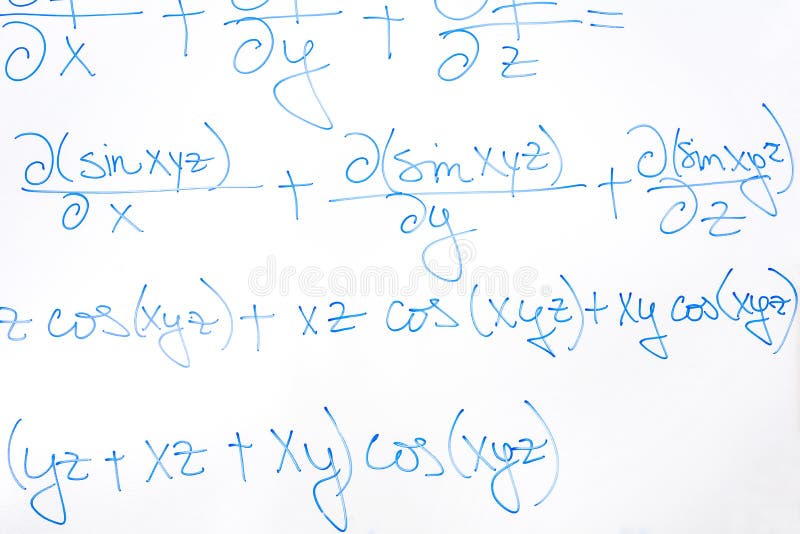 ∂f/∂x + ∂f/∂y + ∂f/∂z =
∂(sin xyz)/∂x + ∂(sin xyz)/∂y + ∂(sin xyz)/∂z
z cos(xyz) + xz cos(xyz) + xy cos(xyz)
(yz + xz + xy) cos(xyz)
dreamstime